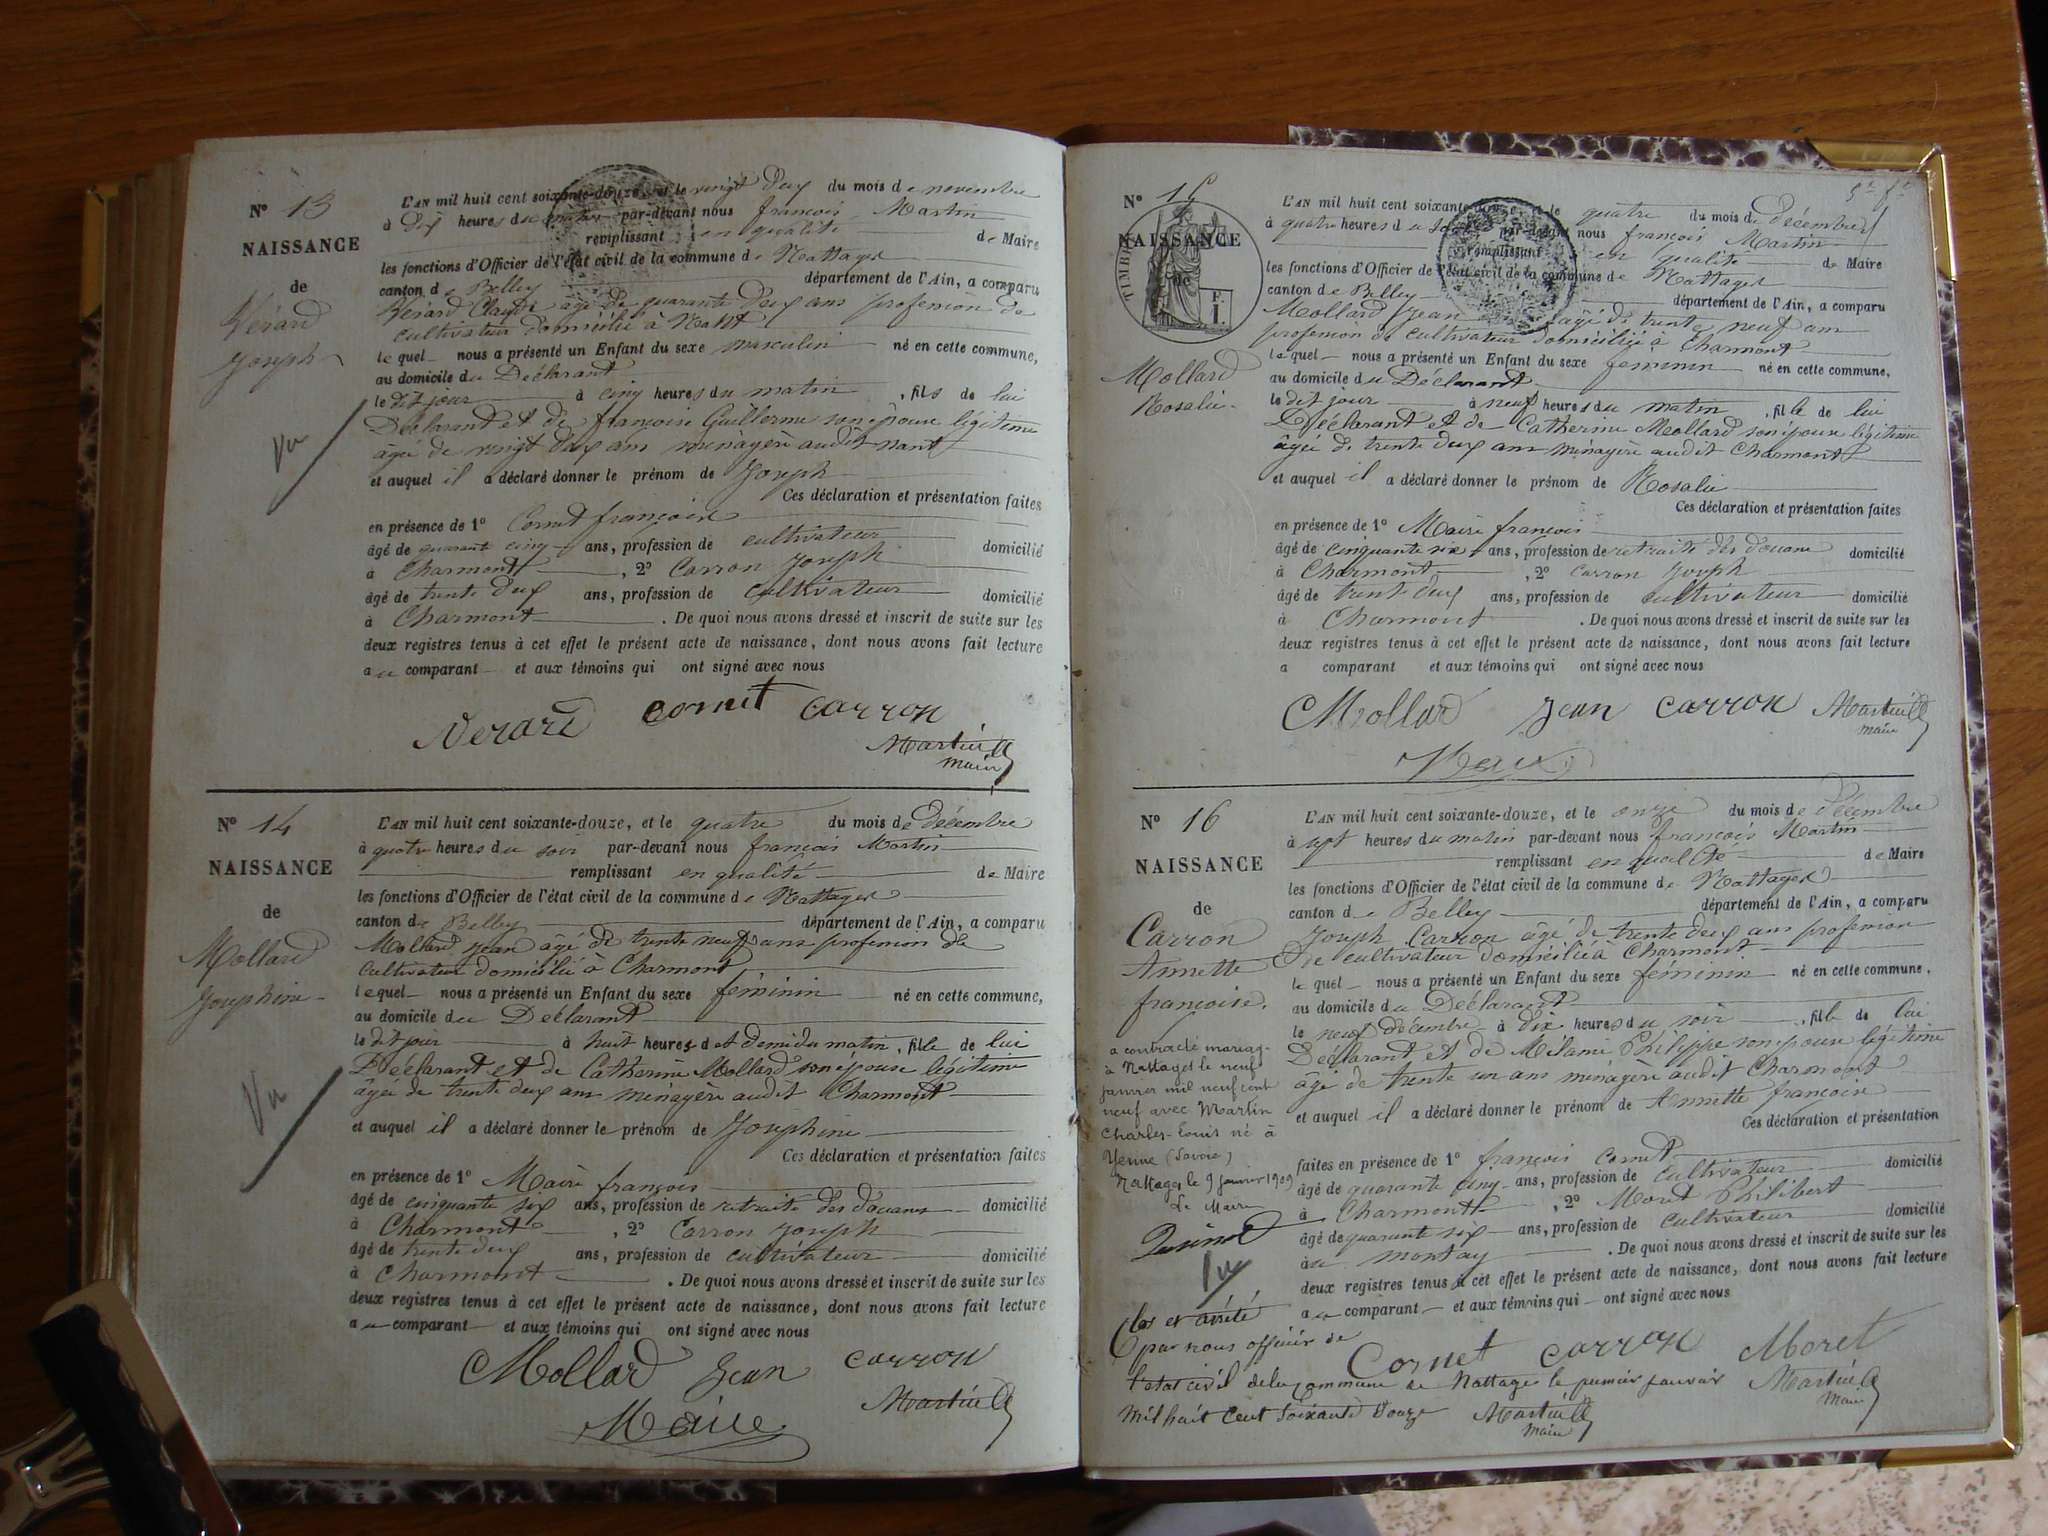 N° 13
NAISSANCE
de
Vérard
Joseph
Vu
L'AN mil huit cent soixante-douze, et le vingt deux du mois de novembre
à dix heures du matin par-devant nous françois Martin
remplissant en qualité de Maire
les fonctions d'Officier de l'état civil de la commune de Nattages
canton de Belley département de l'Ain, a comparu
Vérard Claude âgé de quarante deux ans profession de
cultivateur domicilié à Nant
lequel nous a présenté un Enfant du sexe masculin né en cette commune,
au domicile du Déclarant
le dit jour à cinq heures du matin, fils de lui
Déclarant et de françoise Guillerme son épouse légitime
âgée de vingt deux ans ménagère audit nant
et auquel il a déclaré donner le prénom de Joseph
Ces déclaration et présentation faites
en présence de 1° Cornet françois
âgé de quarante cinq ans, profession de cultivateur domicilié
à Charmont, 2° Carron Joseph
âgé de trente deux ans, profession de cultivateur domicilié
à Charmont. De quoi nous avons dressé et inscrit de suite sur les
deux registres tenus à cet effet le présent acte de naissance, dont nous avons fait lecture
au comparant et aux témoins qui ont signé avec nous
Verard cornet carron
Martin
maire
N° 14
NAISSANCE
de
Mollard
Josephine
Vu
L'AN mil huit cent soixante-douze, et le quatre du mois de Décembre
à quatre heures du soir par-devant nous françois Martin
remplissant en qualité de Maire
les fonctions d'Officier de l'état civil de la commune de Nattages
canton de Belley département de l'Ain, a comparu
Mollard Jean âgé de trente neuf ans profession de
cultivateur domicilié à Charmont
lequel nous a présenté un Enfant du sexe féminin né en cette commune,
au domicile du Déclarant
le dit jour à huit heures et demi du matin, fille de lui
Déclarant et de Catherine Mollard son épouse légitime
âgée de trente deux ans ménagère audit Charmont
et auquel il a déclaré donner le prénom de Josephine
Ces déclaration et présentation faites
en présence de 1° Maire françois
âgé de cinquante six ans, profession de retraité des douanes domicilié
à Charmont, 2° Carron Joseph
âgé de trente deux ans, profession de cultivateur domicilié
à Charmont. De quoi nous avons dressé et inscrit de suite sur les
deux registres tenus à cet effet le présent acte de naissance, dont nous avons fait lecture
au comparant et aux témoins qui ont signé avec nous
Mollard Jean carron
Maire Martin
N° 15
NAISSANCE
de
TIMBRE
Mollard
Rosalie
L'AN mil huit cent soixante-douze, et le quatre du mois de Décembre
à quatre heures du soir par-devant nous françois Martin
remplissant en qualité de Maire
les fonctions d'Officier de l'état civil de la commune de Nattages
canton de Belley département de l'Ain, a comparu
Mollard Jean âgé de trente neuf ans
profession de cultivateur domicilié à Charmont
lequel nous a présenté un Enfant du sexe féminin né en cette commune,
au domicile du Déclarant
le dit jour à neuf heures du matin, fille de lui
Déclarant et de Catherine Mollard son épouse légitime
âgée de trente deux ans ménagère audit Charmont
et auquel il a déclaré donner le prénom de Rosalie
Ces déclaration et présentation faites
en présence de 1° Maire françois
âgé de cinquante six ans, profession de retraité des douane domicilié
à Charmont, 2° Carron Joseph
âgé de trente deux ans, profession de cultivateur domicilié
à Charmont. De quoi nous avons dressé et inscrit de suite sur les
deux registres tenus à cet effet le présent acte de naissance, dont nous avons fait lecture
a comparant et aux témoins qui ont signé avec nous
Mollard Jean carron Martin
maire
N° 16
NAISSANCE
de
Carron
Annette
françoise.
a contracté mariage
à Nattages le neuf
janvier mil neuf cent
neuf avec Martin
Charles-Louis né à
Yenne (Savoie)
Nattages le 9 janvier 1909
Le Maire
Vu
L'AN mil huit cent soixante-douze, et le onze du mois de décembre
à sept heures du matin par-devant nous françois Martin
remplissant en qualité de Maire
les fonctions d'Officier de l'état civil de la commune de Nattages
canton de Belley département de l'Ain, a comparu
Joseph Carron âgé de trente deux ans profession
de cultivateur domicilié à Charmont
lequel nous a présenté un Enfant du sexe féminin né en cette commune,
au domicile du Déclarant
le neuf décembre à dix heures du soir, fille de lui
Déclarant et de Mélanie Philippe son épouse légitime
âgée de trente un ans ménagère audit Charmont
et auquel il a déclaré donner le prénom de Annette françoise
Ces déclaration et présentation
faites en présence de 1° françois Cornet
âgé de quarante cinq ans, profession de cultivateur domicilié
à Charmont, 2° Moret Philibert
âgé de quarante six ans, profession de cultivateur domicilié
au montay. De quoi nous avons dressé et inscrit de suite sur les
deux registres tenus à cet effet le présent acte de naissance, dont nous avons fait lecture
au comparant et aux témoins qui ont signé avec nous
Cornet carron Moret
Martin
maire
Clos et arrêté
par nous officier de
l'etat civil de la commune de Nattages le premier janvier
mil huit cent soixante douze Martin
maire